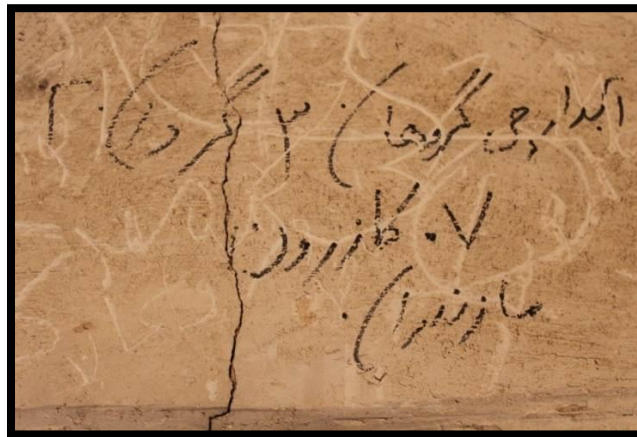 آبدارچی گروهان ۳ گردان ۲
۷. کازرون
مازندران